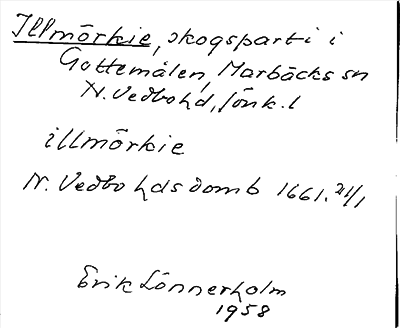 Illmörkie, skogsparti i
Gottemålen, Marbäcks sn
N. Vedbo hd, Jönk. l
illmörkie
N. Vedbo hds domb 1661. 21/1
Erik Lönnerholm
1958